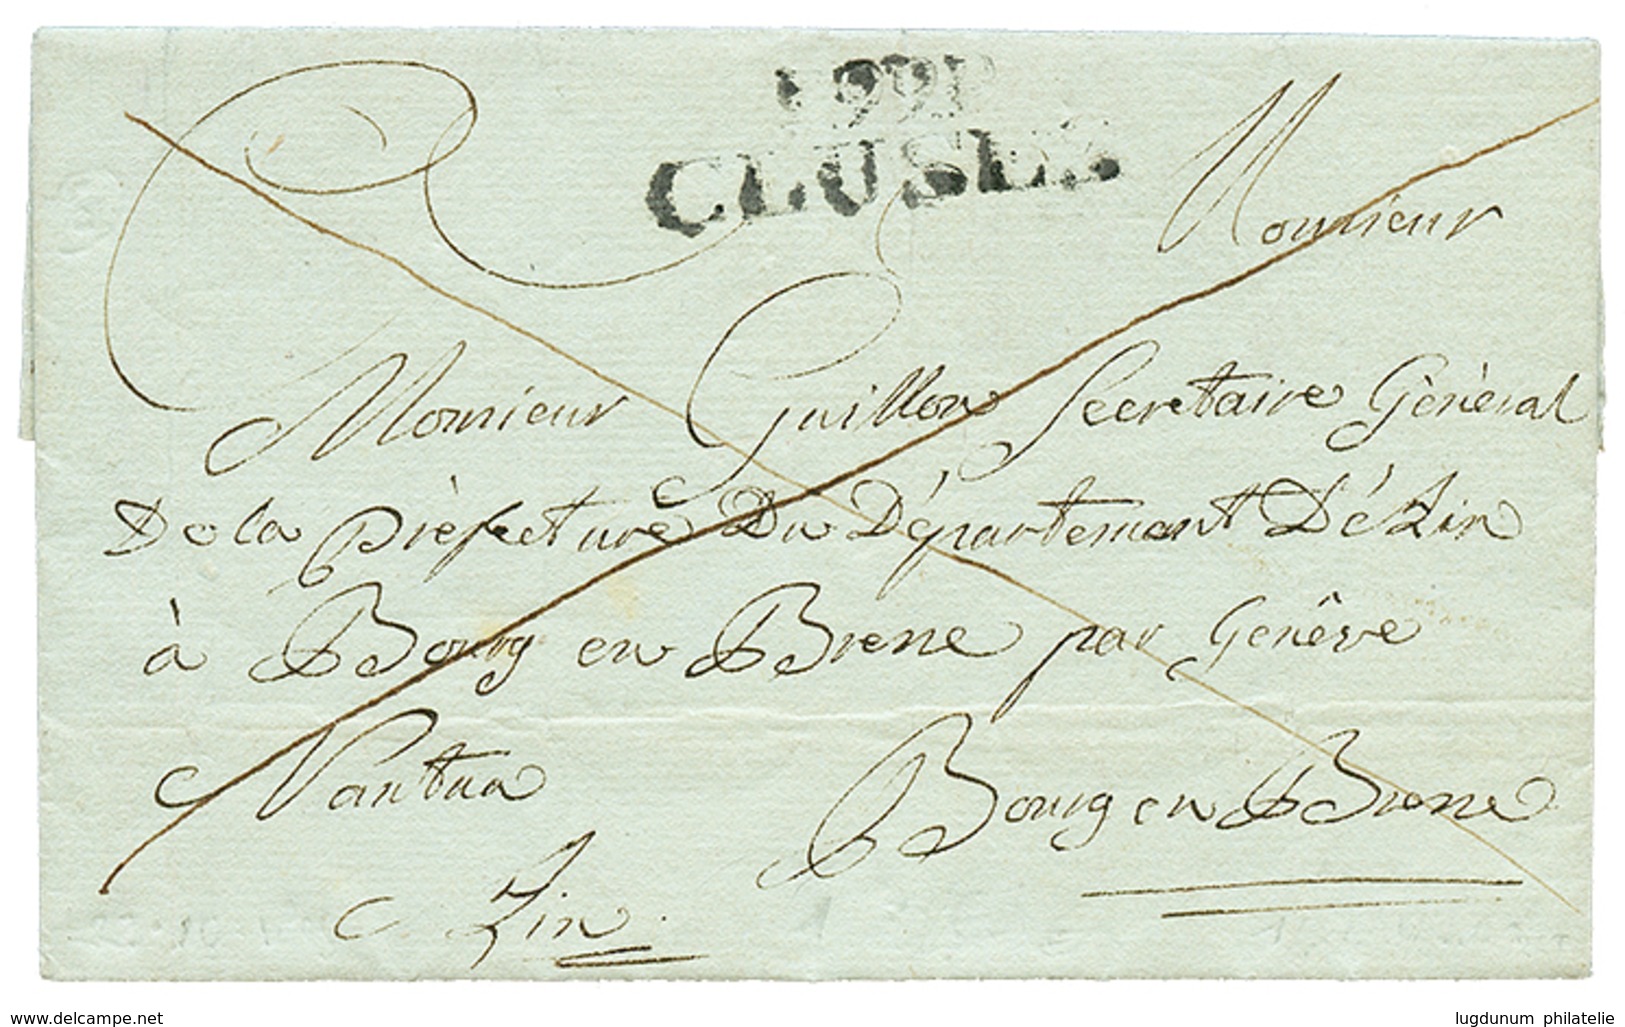 CLUSES
Monsieur
Monsieur Guillon Secretaire Général
De la Préfecture Du Département Dé Lin
à Bourg en Brene par Genêve
Nantua Bourg en Brene
Lin
www.delcampe.net lugdunum philatelie